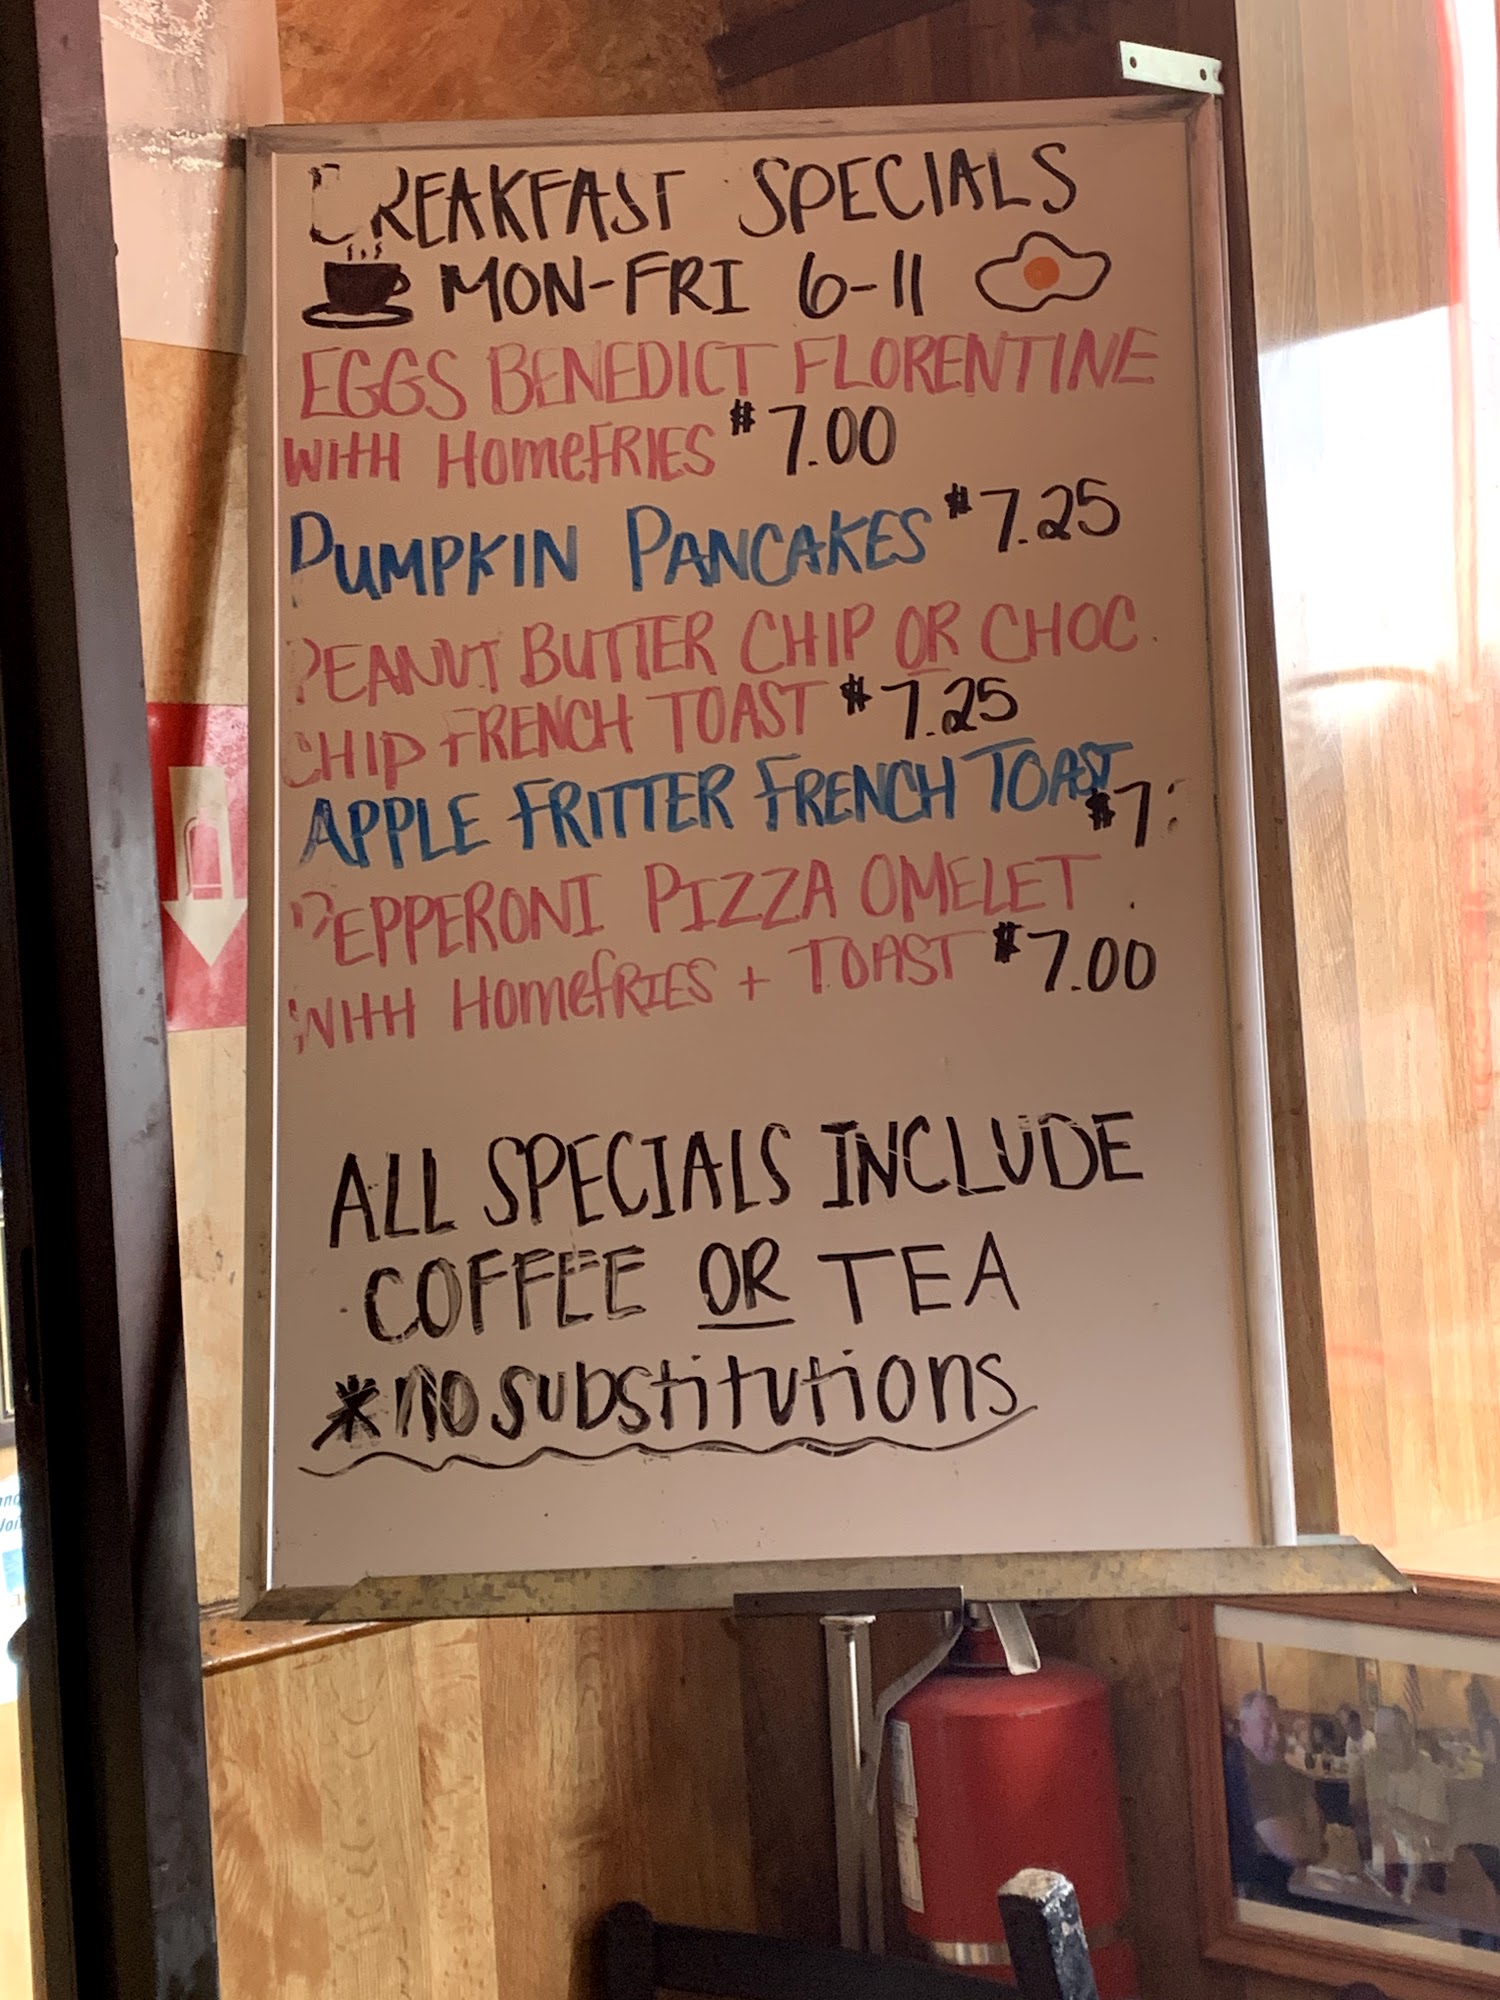 BREAKFAST SPECIALS
MON-FRI 6-11
EGGS BENEDICT FLORENTINE
WITH HOMEFRIES $7.00
PUMPKIN PANCAKES $7.25
PEANUT BUTTER CHIP OR CHOC
CHIP FRENCH TOAST $7.25
APPLE FRITTER FRENCH TOAST
$7
PEPPERONI PIZZA OMELET
WITH HOMEFRIES + TOAST $7.00
ALL SPECIALS INCLUDE
COFFEE OR TEA
*no substitutions